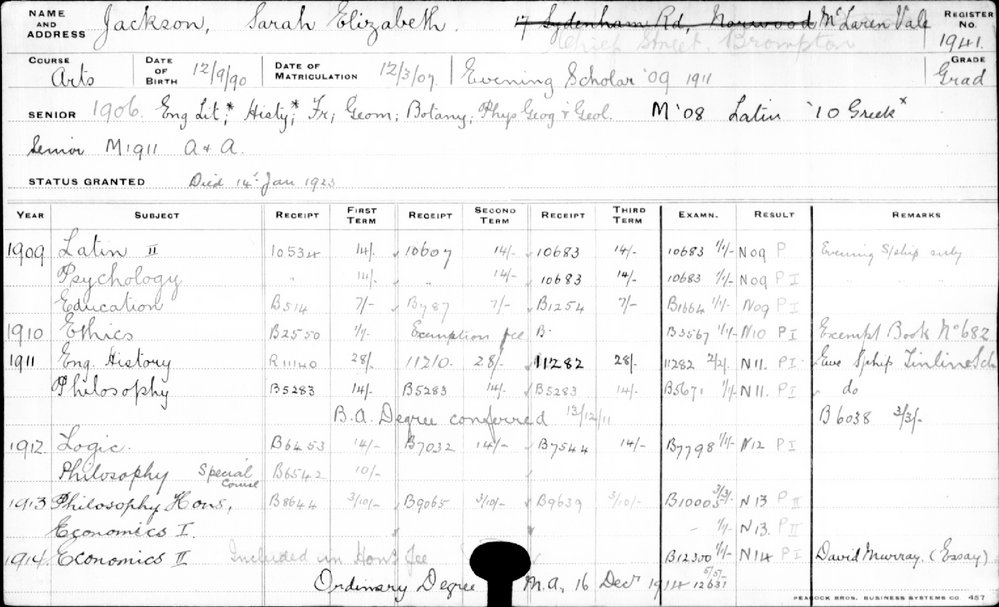 NAME AND ADDRESS Jackson, Sarah Elizabeth. 17 Sydenham Rd, Norwood McLaren Vale REGISTER NO. 1941.
Chief Street, Brompton
COURSE Arts DATE OF BIRTH 12/9/90 DATE OF MATRICULATION 12/3/07. Evening Scholar '09 1911 GRADE Grad
SENIOR 1906. Eng Lit;* Histy;* Fr; Geom; Botany; Phys Geog & Geol. M '08 Latin '10 Greek*
Senior M1911 A & A.
STATUS GRANTED Died 14th Jan 1923
YEAR SUBJECT RECEIPT FIRST TERM RECEIPT SECOND TERM RECEIPT THIRD TERM EXAMN. RESULT REMARKS
1909 Latin II 10534 14/- 10607 14/- 10683 14/- 10683 1/1/- N09 P Evening S/ship only
Psychology " 14/- " 14/- 10683 14/- 10683 1/1/- N09 P I " "
Education B514 7/- B787 7/- B1254 7/- B1664 1/1/- N09 P I
1910 Ethics B2550 1/1/- Exemption fee B- B3567 1/1/- N10 P I Exempt Book No 682
1911 Eng. History R11140 28/- 11210. 28/- 11282 28/- 11282 2/2/- N11. P I Eve S/ship Tinline Sch
Philosophy B5283 14/- B5283 14/- B5283 14/- B5671 1/1/- N11. P I do
B.A. Degree conferred 13/12/11 B6038 3/3/-
1912 Logic. B6453 14/- B7032 14/- B7544 14/- B7798 1/1/- N12 P I
Philosophy Special Course B6542 10/-
1913 Philosophy Hons, B8644 3/10/- B9065 3/10/- B9639 3/10/- B10005 3/3/- N13 P II
Economics I. - 1/1/- N13. P II
1914 Economics II Included in Hons Fee B12300 1/1/- N14 P I David Murray. (Essay)
Ordinary Degree M.A, 16 Decr 1914 12631 5/5/-
PEACOCK BROS. BUSINESS SYSTEMS CO. 457